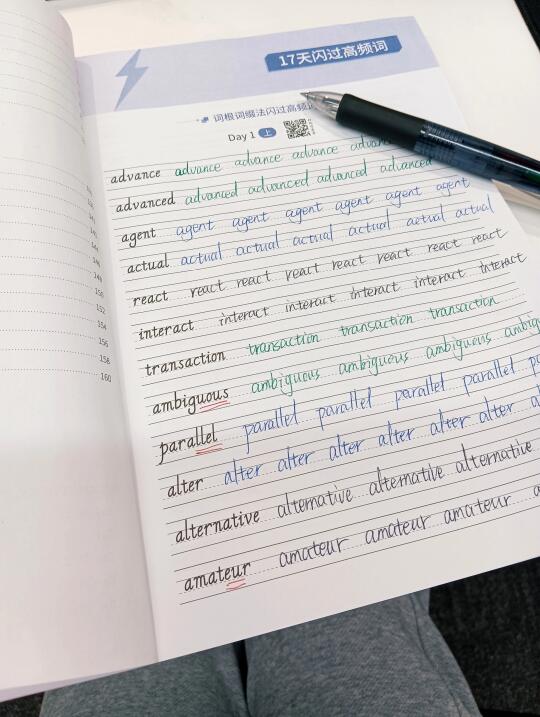 17天闪过高频词
词根词缀法闪过高频
Day 1 上
advance advance advance advance
advanced advanced advanced advanced advanced
agent agent agent agent agent agent agent
actual actual actual actual actual actual actual
react react react react react react react react
interact interact interact interact interact interact
transaction transaction transaction transaction
ambiguous ambiguous ambiguous ambiguous
parallel parallel parallel parallel parallel
alter alter alter alter alter alter alter
alternative alternative alternative alternative
amateur amateur amateur amateur
150
152
154
156
158
160